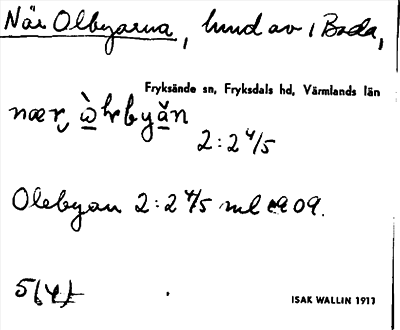 När Olbyarna, hund av i Bada,
Fryksände sn, Fryksdals hd, Värmlands län
nær
2:2 4/5
Olebyan 2:2 4/5 ml 1909.
5(4)
ISAK WALLIN 1911